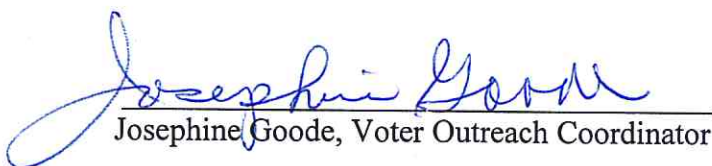 Josephine Goode
Josephine Goode, Voter Outreach Coordinator